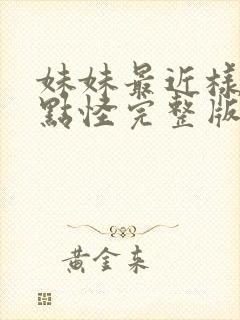 妹妹最近樣
點怪完整版
黃金來